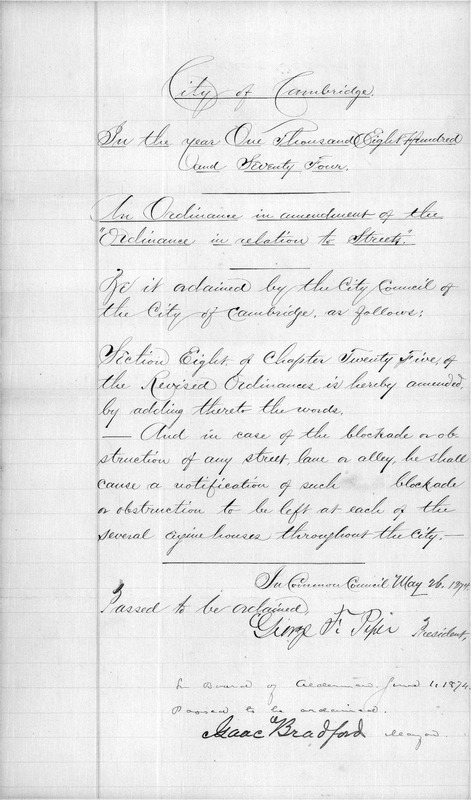 City of Cambridge.
In the year One Thousand Eight Hundred
and Seventy Four.
An Ordinance in amendment of the
"Ordinance in relation to Streets."
Be it ordained by the City Council of
the City of Cambridge, as follows:
Section Eight, of Chapter Twenty Five, of
the Revised Ordinances is hereby amended,
by adding thereto the words,
— And in case of the blockade or ob
struction of any street, lane or alley, he shall
cause a notification of such blockade
or obstruction to be left at each of the
several engine houses throughout the City. —
In Common Council May 26. 1874.
Passed to be ordained,
George F. Piper President,
In Board of Aldermen June 1. 1874.
Passed to be ordained.
Isaac Bradford Mayor.